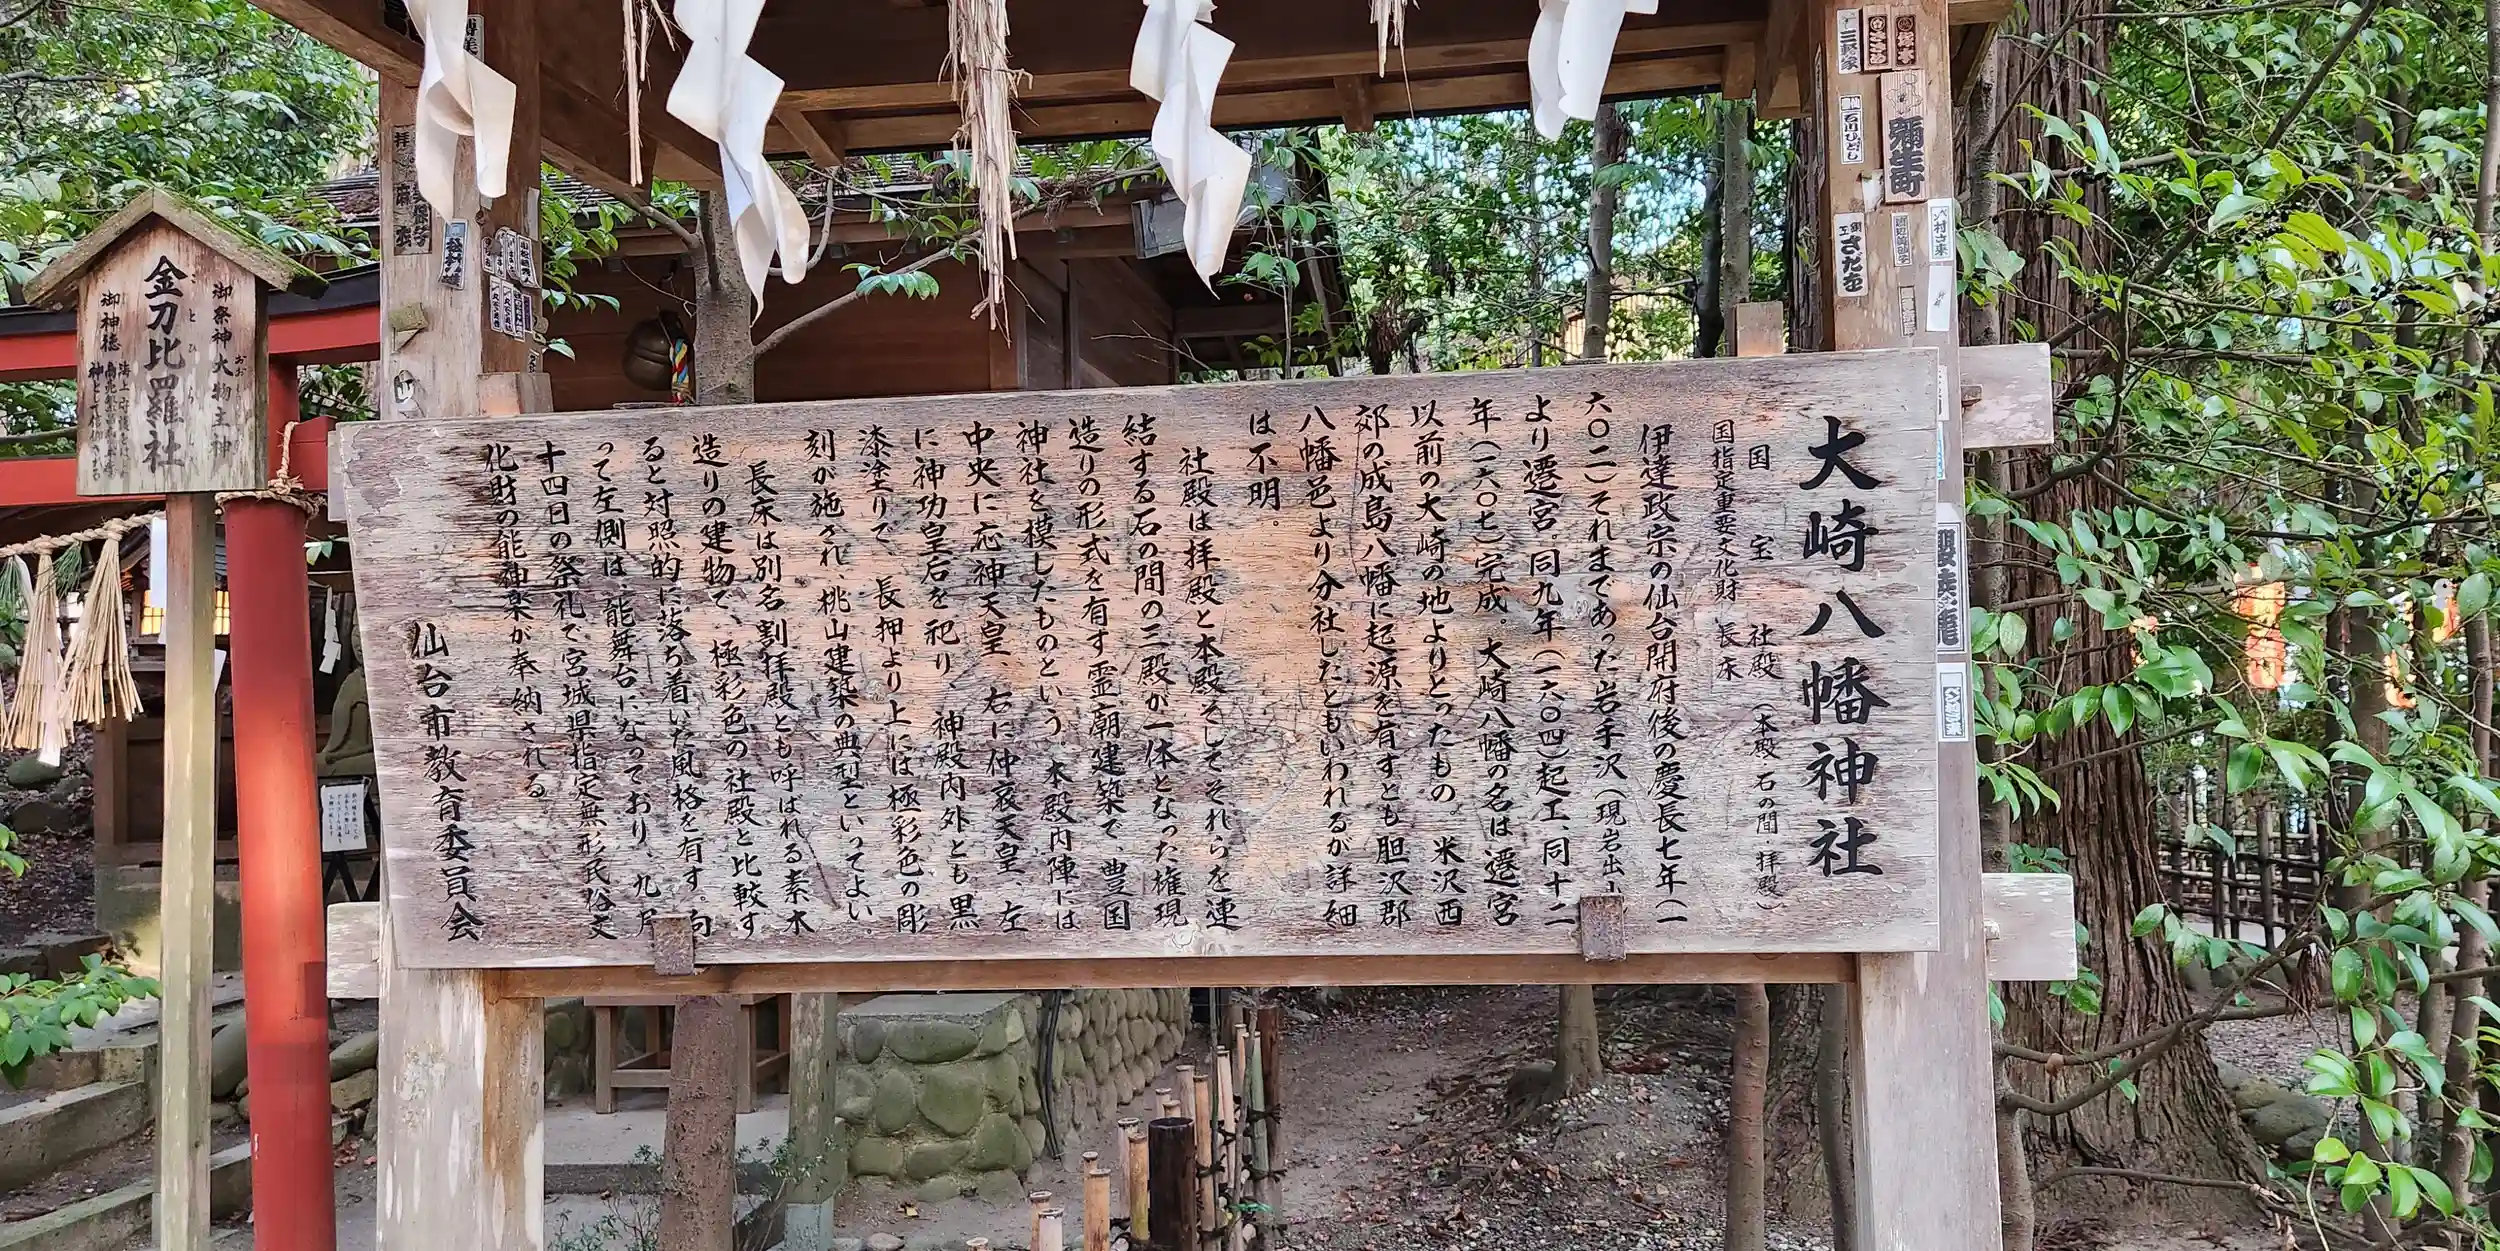 大崎八幡神社
国宝 社殿(本殿 石の間・拝殿)
国指定重要文化財 長床
伊達政宗の仙台開府後の慶長七年(一
六〇二)それまであった岩手沢(現岩出山
より遷宮。同九年(一六〇四)起工、同十二
年(一六〇七)完成。大崎八幡の名は遷宮
以前の大崎の地よりとったもの。米沢西
郊の成島八幡に起源を有すとも胆沢郡
八幡邑より分社したともいわれるが詳細
は不明。
社殿は拝殿と本殿そしてそれらを連
結する石の間の三殿が一体となった権現
造りの形式を有す霊廟建築で、豊国
神社を模したものという。本殿内陣には
中央に応神天皇、右に仲哀天皇、左
に神功皇后を祀り、神殿内外とも黒
漆塗りで、長押より上には極彩色の彫
刻が施され、桃山建築の典型といってよい。
長床は別名割拝殿とも呼ばれる素木
造りの建物で、極彩色の社殿と比較す
ると対照的に落ち着いた風格を有す。向
って左側は、能舞台になっており、九月
十四日の祭礼で宮城県指定無形民俗文
化財の能神楽が奉納される
仙台市教育委員会
御祭神 大物主神
おおものぬしのかみ
金刀比羅社
ことひら
御神徳
彌生町
石川ひとし
さだを